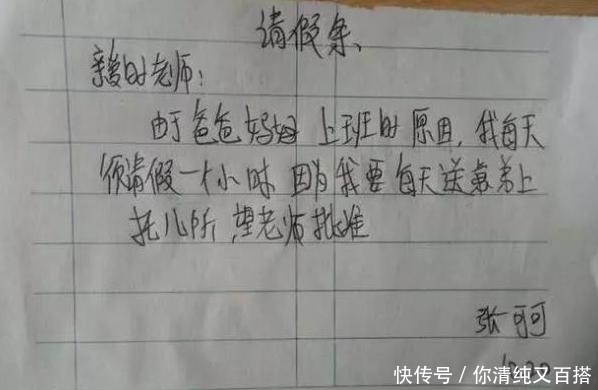 请假条、
亲爱的老师:
由于爸爸妈妈上班的原因,我每天
须请假一个小时因为我要每天送弟弟上
托儿所,望老师批准
张可可
快传号 / 你清纯又百搭